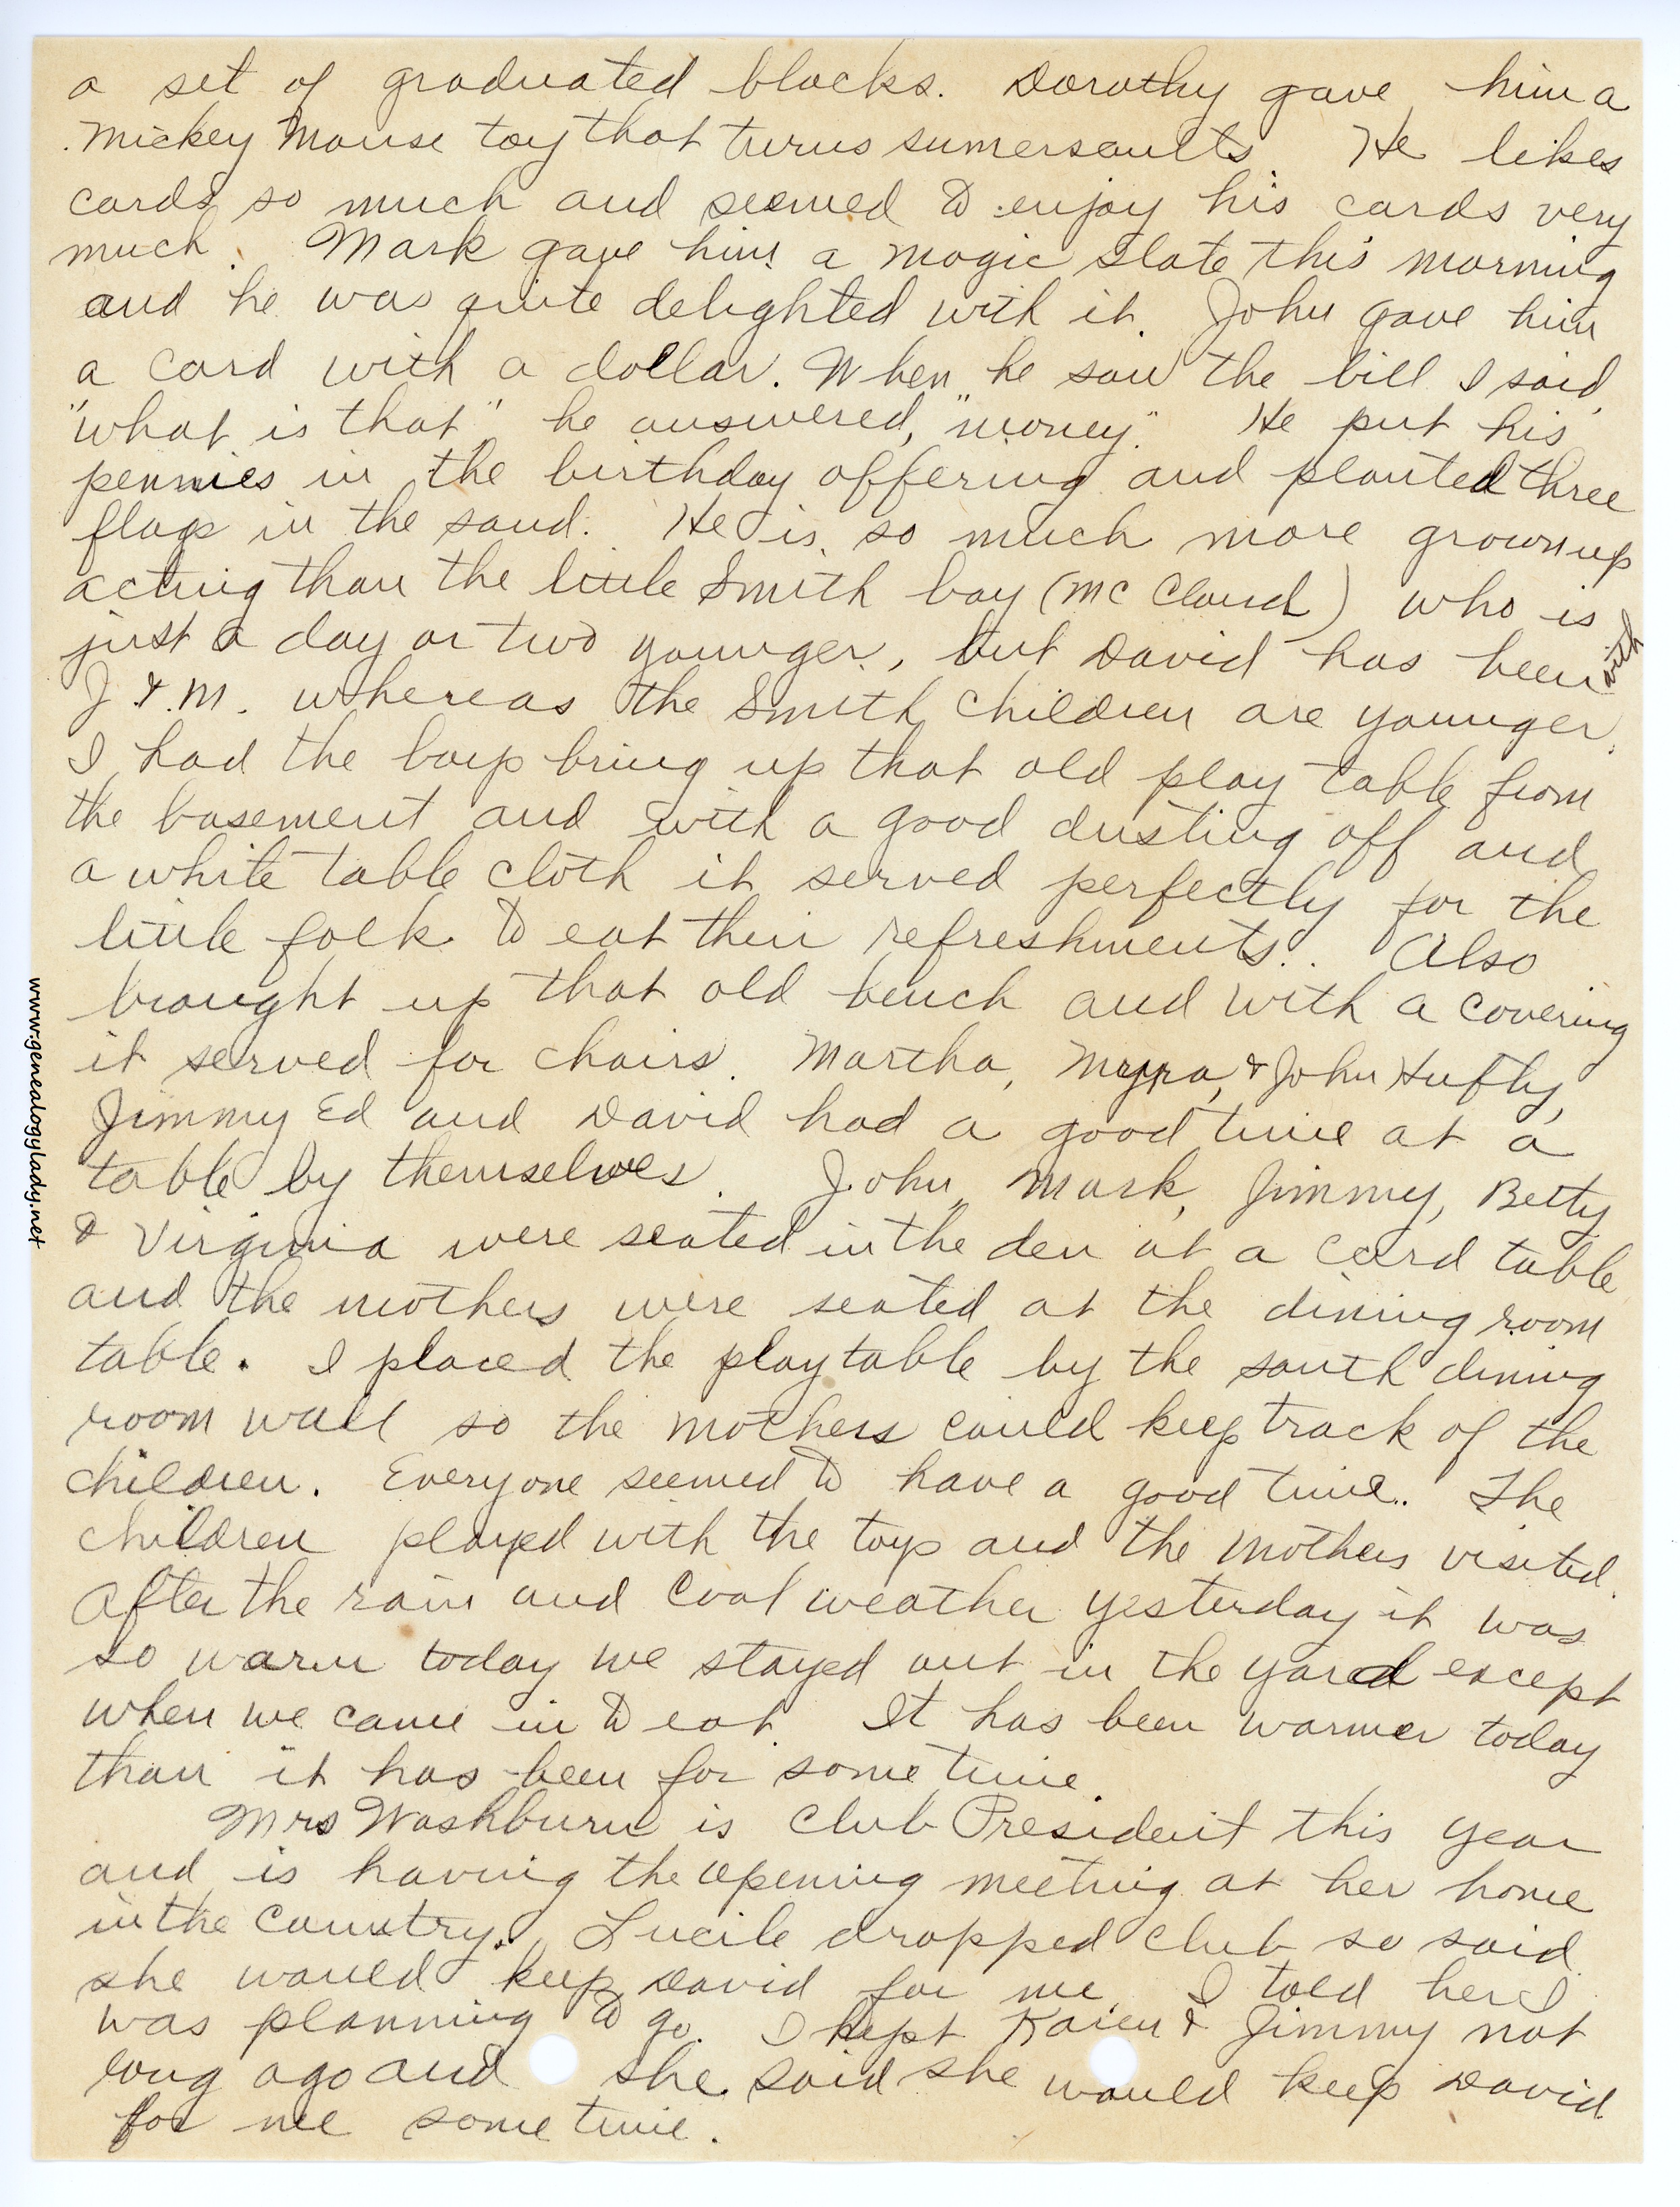 a set of graduated blocks. Dorothy gave him a
Mickey Mouse toy that turns sumersaults He likes
cards so much and seemed to enjoy his cards very
much. Mark gave him a magic slate this morning
and he was quite delighted with it. John gave him
a card with a dollar. When he saw the bill I said,
"what is that" he answered, "money." He put his
pennies in the birthday offering and planted three
flags in the sand. He is so much more grownup
acting than the little Smith boy (Mc Cloud) who is
just a day or two younger, but David has been with
J. & M. whereas the Smith children are younger.
I had the boys bring up that old play table from
the basement and with a good dusting off and
a white table cloth it served perfectly for the
little folk to eat their refreshments. Also
brought up that old bench and with a covering
it served for chairs. Martha, Myra, & John Hufty,
Jimmy Ed and David had a good time at a
table by themselves. John, Mark, Jimmy, Betty
& Virginia were seated in the den at a card table
and the mothers were seated at the dining room
table. I placed the play table by the south dining
room wall so the mothers could keep track of the
children. Everyone seemed to have a good time. The
children played with the toys and the mothers visited.
After the rain and cool weather yesterday it was
so warm today we stayed out in the yard except
when we came in to eat. It has been warmer today
than it has been for some time.
Mrs Washburn is Club President this year
and is having the opening meeting at her home
in the country. Lucile dropped club so said
she would keep David for me. I told her I
was planning to go. I kept Karen & Jimmy not
long ago and she said she would keep David
for me some time.
www.genealogylady.net